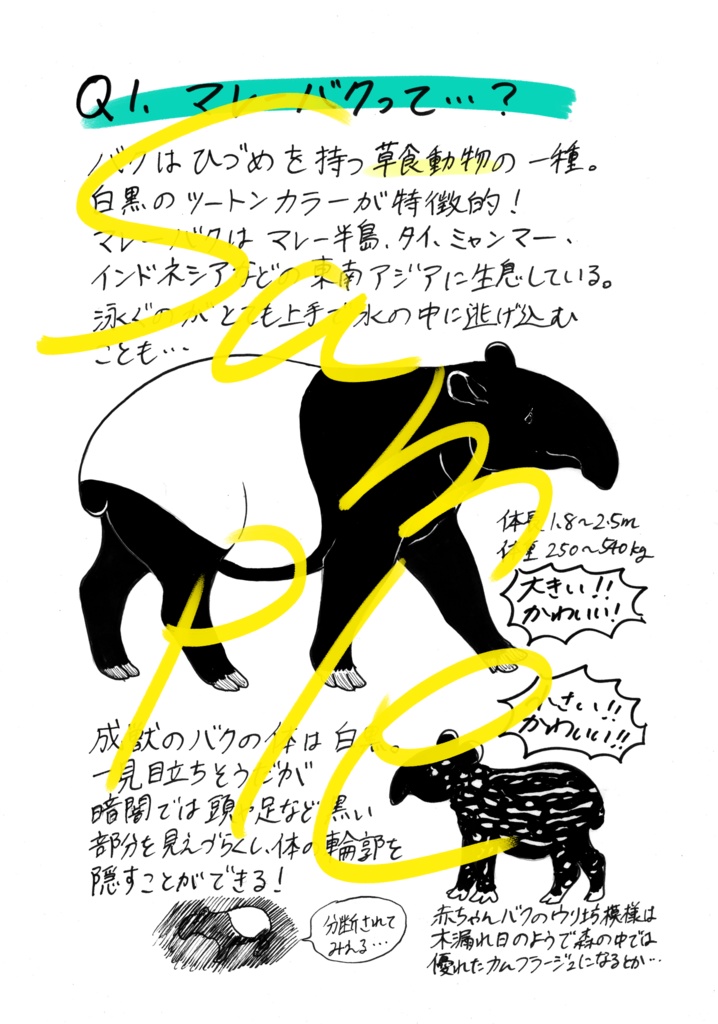 Q1. マレーバクって…?
バクはひづめを持つ草食動物の一種。
白黒のツートンカラーが特徴的!
マレーバクは マレー半島、タイ、ミャンマー、
インドネシアなどの東南アジアに生息している。
泳ぐのがとても上手で水の中に逃げ込む
ことも…
Sample
体長 1.8〜2.5m
体重 250〜540kg
大きい!!
かわいい!
小さい!!
かわいい!!
成獣のバクの体は白黒。
一見目立ちそうだが
暗闇では頭や足など黒い
部分を見えづらくし、体の輪郭を
隠すことができる!
分断されて
みえる…
赤ちゃんバクのウリ坊模様は
木漏れ日のようで森の中では
優れたカムフラージュになるとか…